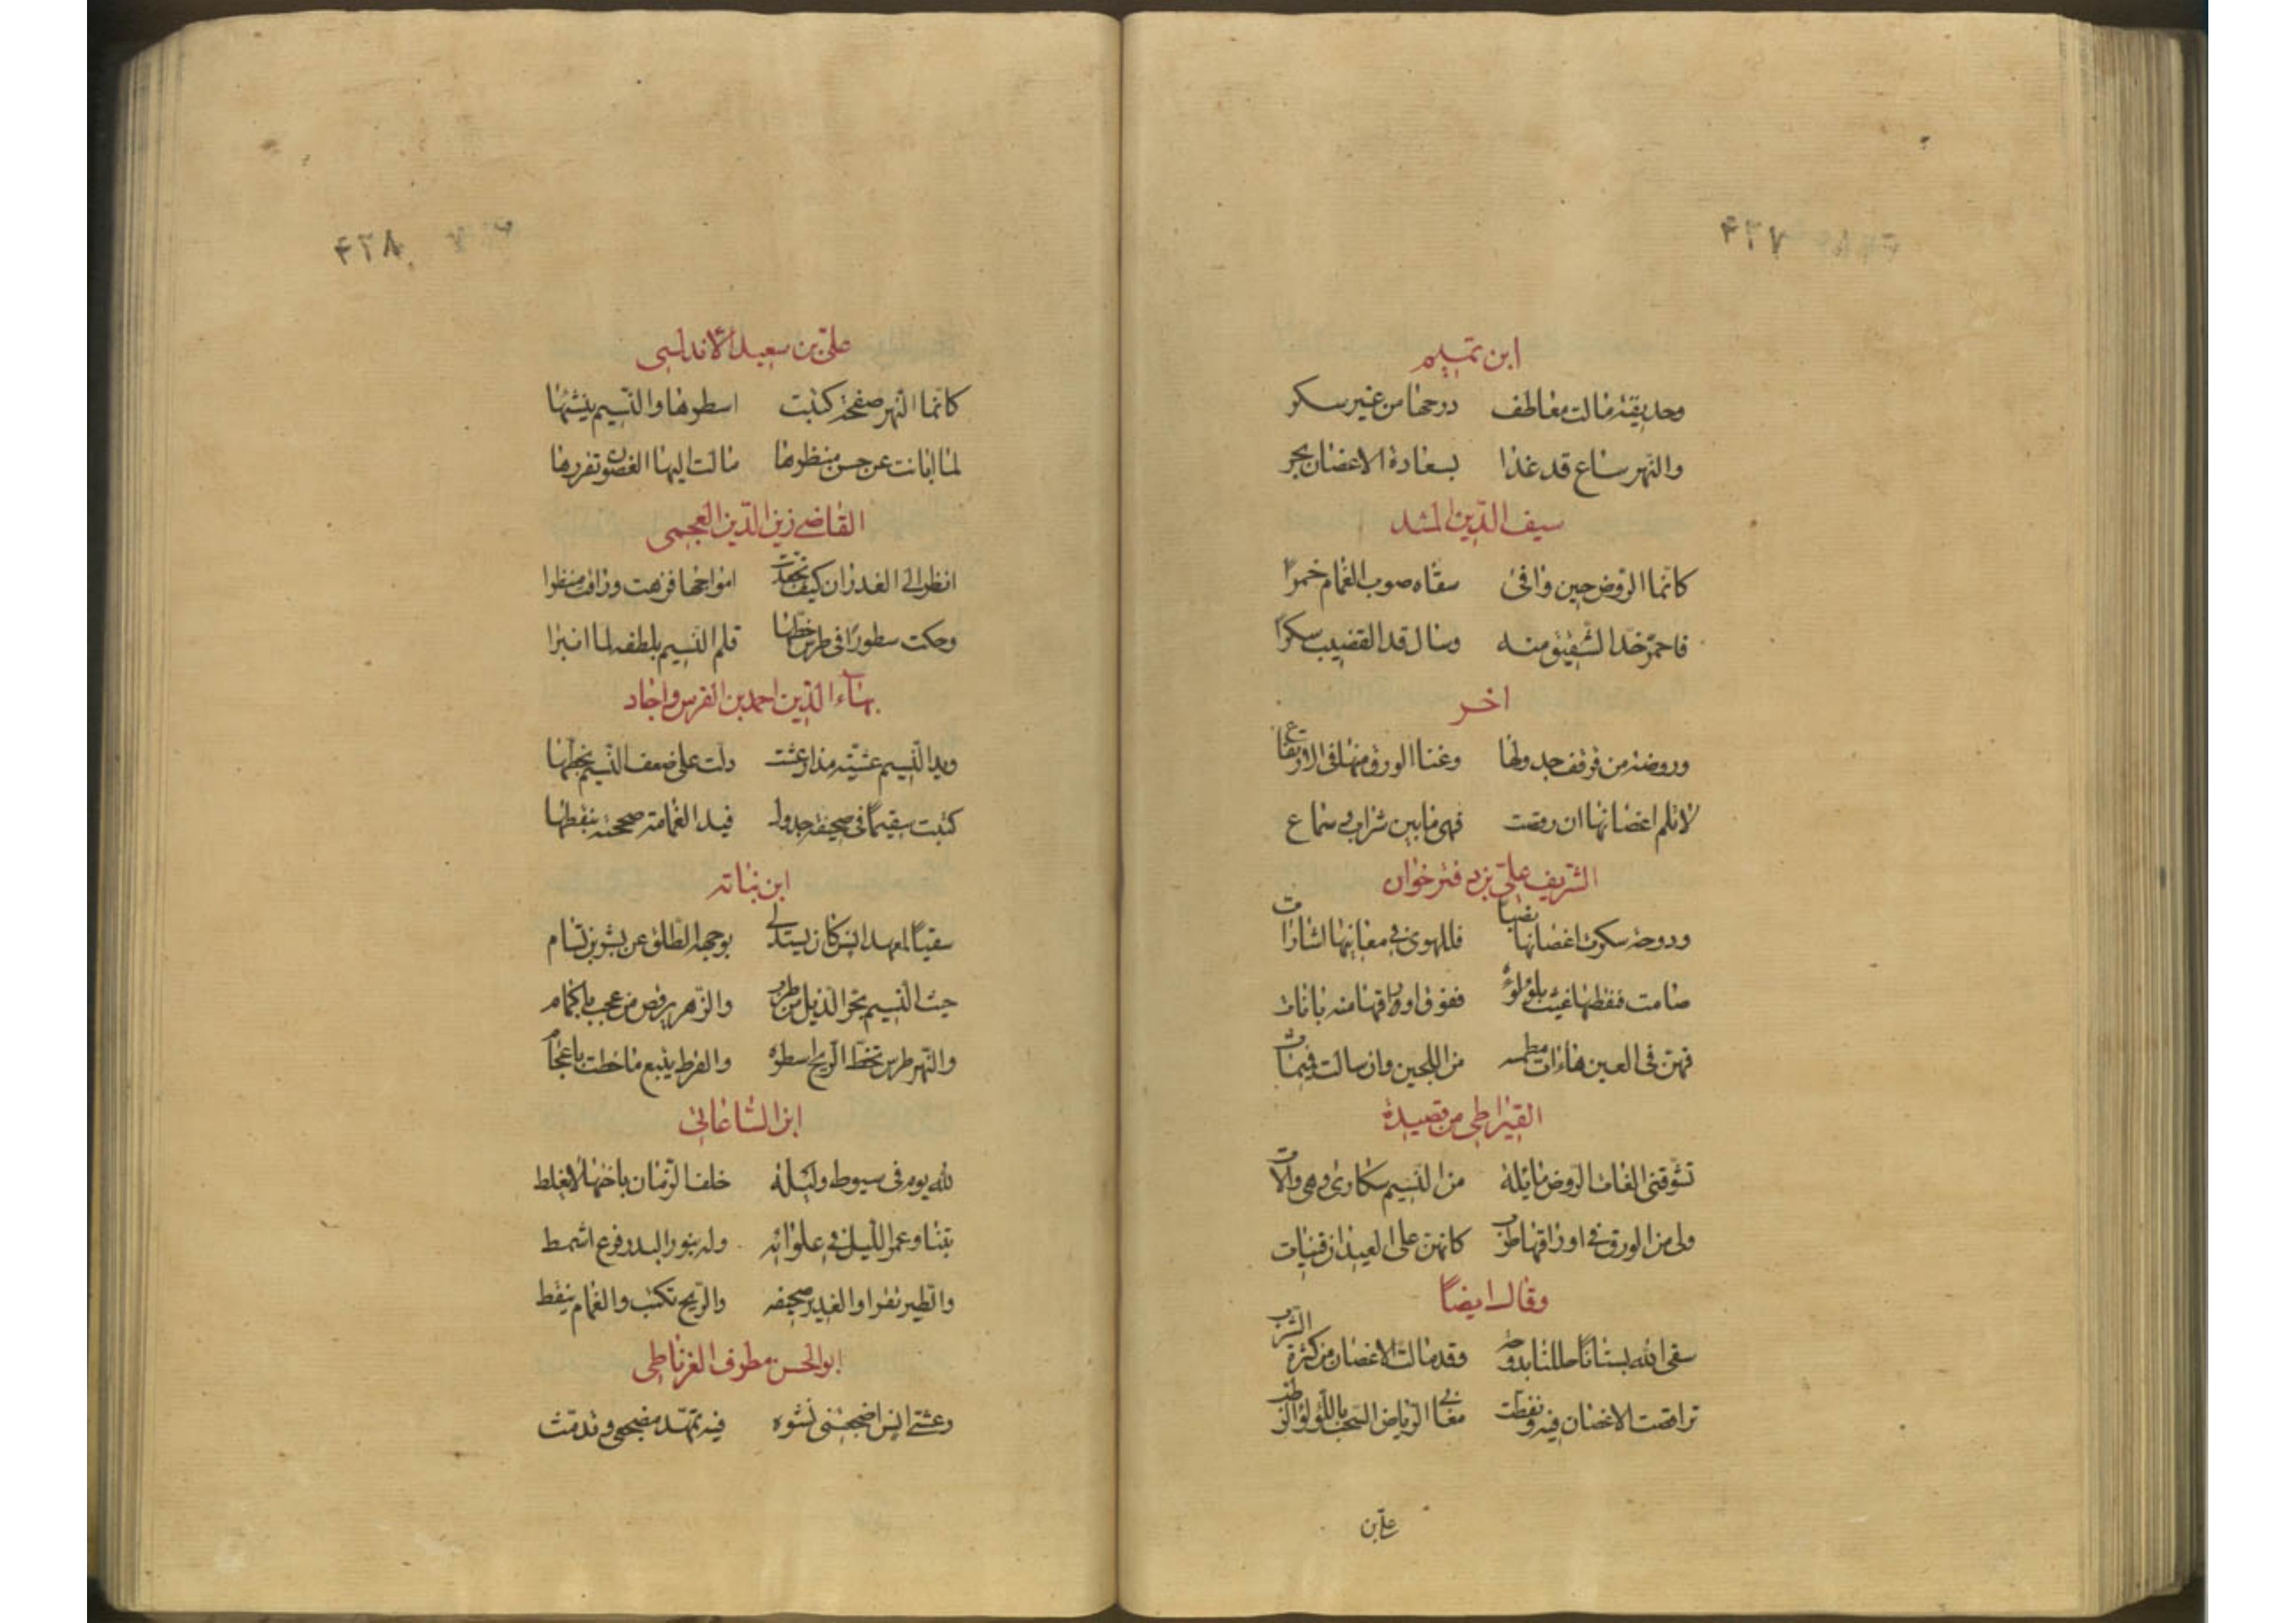 ۴۲۷
ابن تميم
وحديقة مالت معاطف دوحها من غير سكر
والنهر ساع قد غدا بسعادة الاغصان يجر
سيف الدين المشد
كانما الروض حين وافى سقاه صوب الغمام خمرًا
فاحمرّ خد الشقيق منه ومال قد القضيب سكرًا
اخر
وروضة من قرقف جدولها وغنا الورق منها في الارتفاع
لا تلم اغصانها ان رقصت فهي ما بين شراب وسماع
الشريف علي دفترخوان
ودوحة سكرت اغصانها بصبا فللهوى في مغانيها اشارات
صامت فنقطها غيث بلؤلؤه ففوق اوراقها منه بانات
فهن في العين هاءات مطمسه من اللجين وان سالت فميمات
القيراطي من قصيدة
تشوقني الفات الروض مائلة من النسيم سكارى وهي والات
ولي من الورق في اوراقها طرب كانهن على العيدان قينات
وقال ايضًا
سقى الله بستانًا حللنا بدوحه وقد مالت الاغصان من كثرة الشرب
تراقصت الاغصان فيه ونقطت مغاني الرياض السحب باللؤلؤ الرطب
علي بن
۴۲۸
علي بن سعيد الاندلسي
كانما النهر صفحة كتبت اسطرها والنسيم ينشئها
لما ابانت عن حسن منظرها مالت اليها الغصون تقرءها
القاضي زين الدين العجمي
انظر الى الغدران كيف تجعدت امواجها فزهت وراقت منظرا
وحكت سطورًا في طرس خطها قلم النسيم بلطفه لما انبرا
بهاء الدين احمد بن الفرس واجاد
ويد النسيم عشية مذ ارعشت دلت على ضعف النسيم بخطها
كتبت سقيمًا في صحيفة جدول فيد الغمامة صححته بنقطها
ابن نباته
سقيًا لمعهد انس كان يستدلي بوجهه الطلق عن بشر بن بسام
حيث النسيم يجر الذيل من طرب والزهر يرقص من عجب باكمام
والنهر طرس تخط الريح اسطره والقرط يتبع ما خطت باعجام
ابن الساعاتي
لله يوم في سيوط وليلة خلف الزمان باختها لا يغلط
بتنا وعمر الليل في غلوائه وله بنور البدر فرع اشمط
والطير تقرا والغدير صحيفه والريح تكتب والغمام ينقط
ابو الحسن مطرف الغرناطي
وعشي انس اضجعني نشوه فيه تمهد مضجعي وتدمث